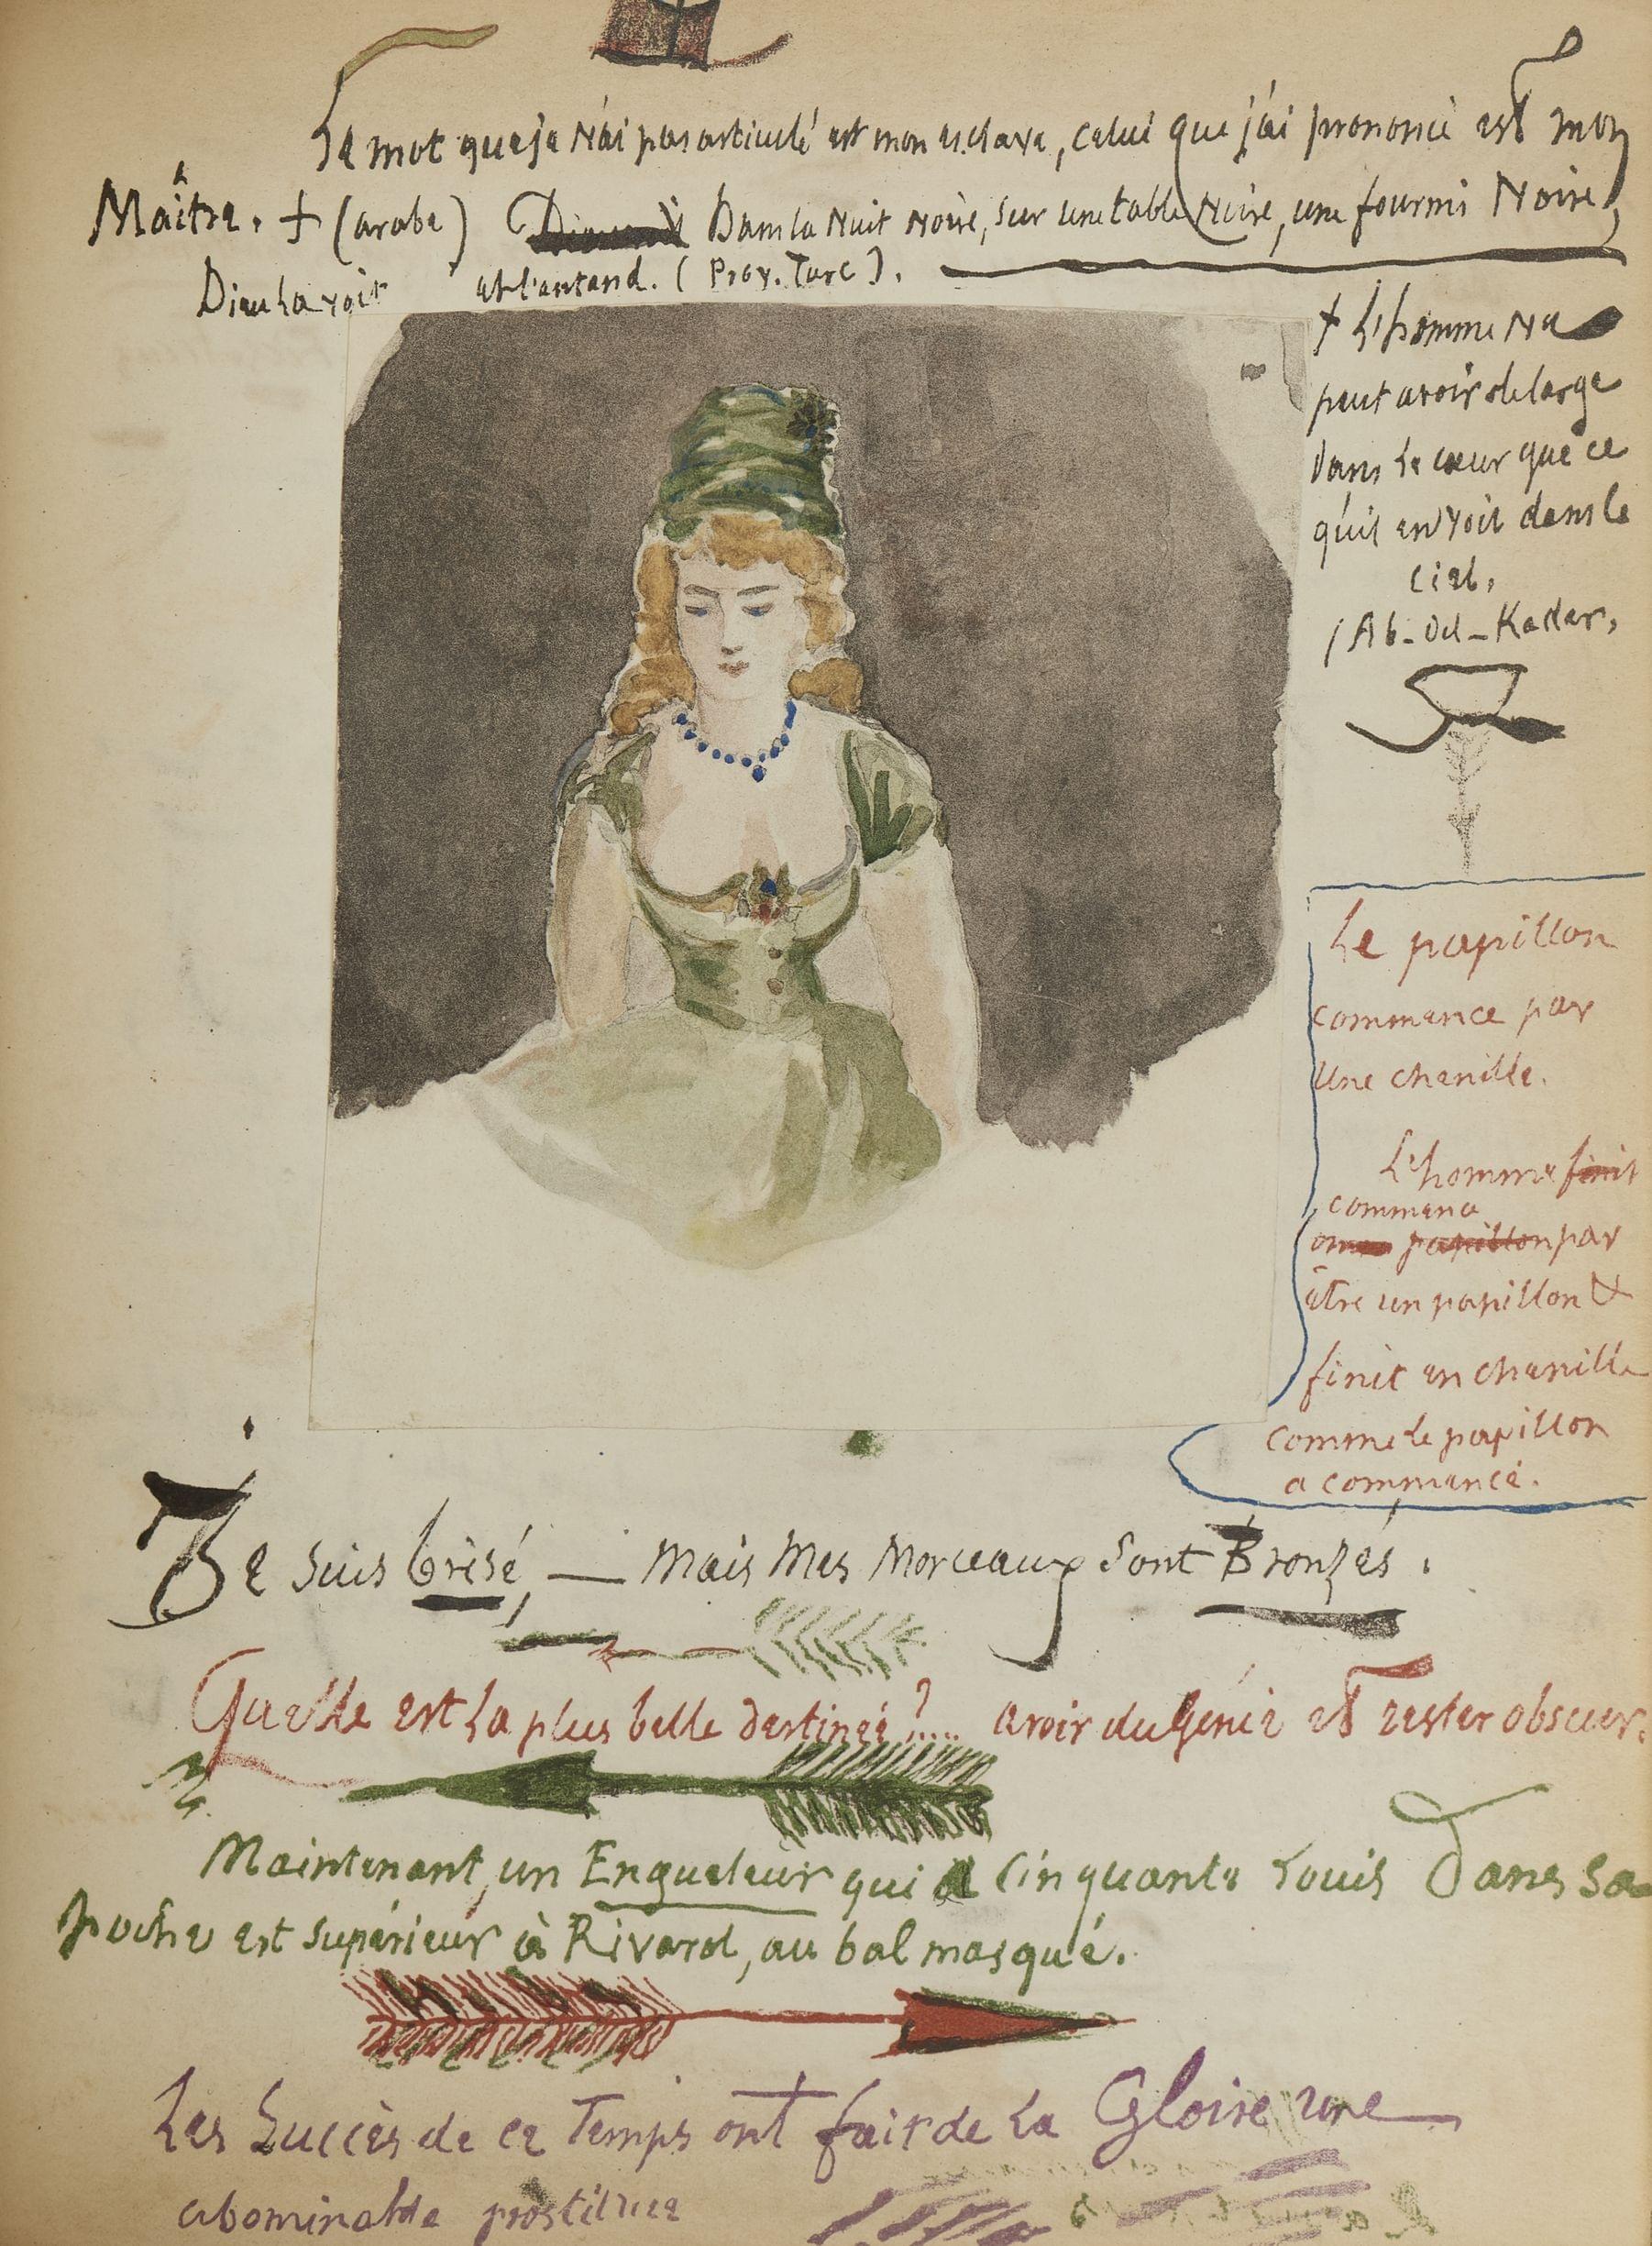 Le mot que je N'ai pas articulé est mon esclave, celui que j'ai prononcé est mon
Maître. + (arabe) Dans la Nuit Noire, sur une table Noire, une fourmi Noire,
Dieu la voit et l'entend. (Prov. Turc).
+ L'homme Ne
peut avoir de large
dans le cœur que ce
qu'il en voit dans le
ciel,
(Ab-del-Kader,
Le papillon
commence par
Une chenille.
L'homme finit
commence
papillon par
être un papillon &
finit en chenille
comme le papillon
a commencé.
Je suis brisé, — Mais Mes Morceaux sont Bronzés.
Quelle est la plus belle destinée?.... avoir du Génie et rester obscur.
Maintenant, un Engueuleur qui a Cinquante Louis Dans sa
poche est supérieur à Rivarol, au bal masqué.
Les Succès de ce Temps ont fait de la Gloire une
abominable prostituée